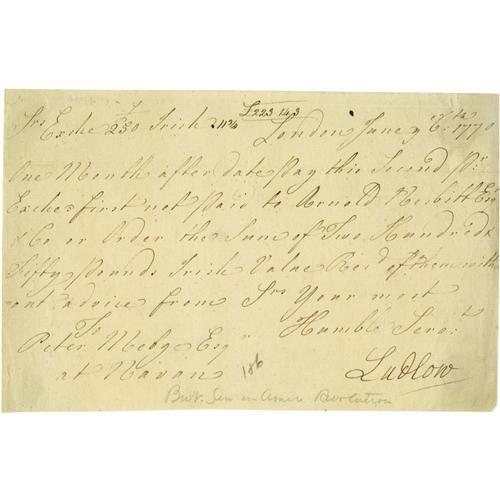 £223.14.3
Srs Exche £250 Irish 11¾ London June ye 6th 1770
One Month after date pay this Second pr
Exche first not paid to Arnold Nesbitt Esqr
& Co or Order the Sume of Two Hundred &
Fifty pounds Irish Value Recd of them with
out advice from Srs Your most
To Humble Servt
Peter Medge Esqr
at Navan 186 Ludlow
Brit. Gen in Amer Revolution